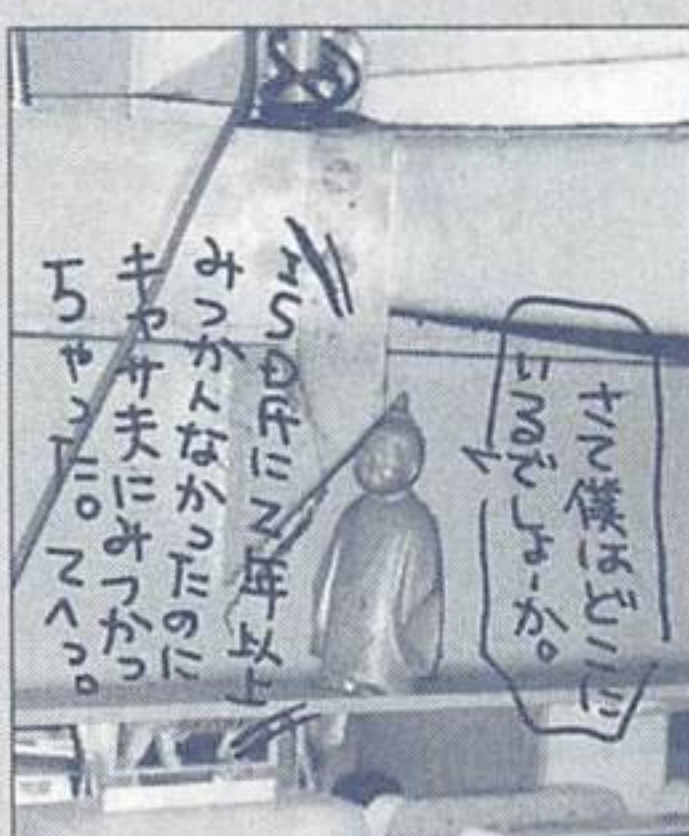 さて僕はどこに
いるでしょーか。
ISD斤に2年以上
みつかんなかったのに
キャサ夫にみつかっ
ちゃった。てへっ。